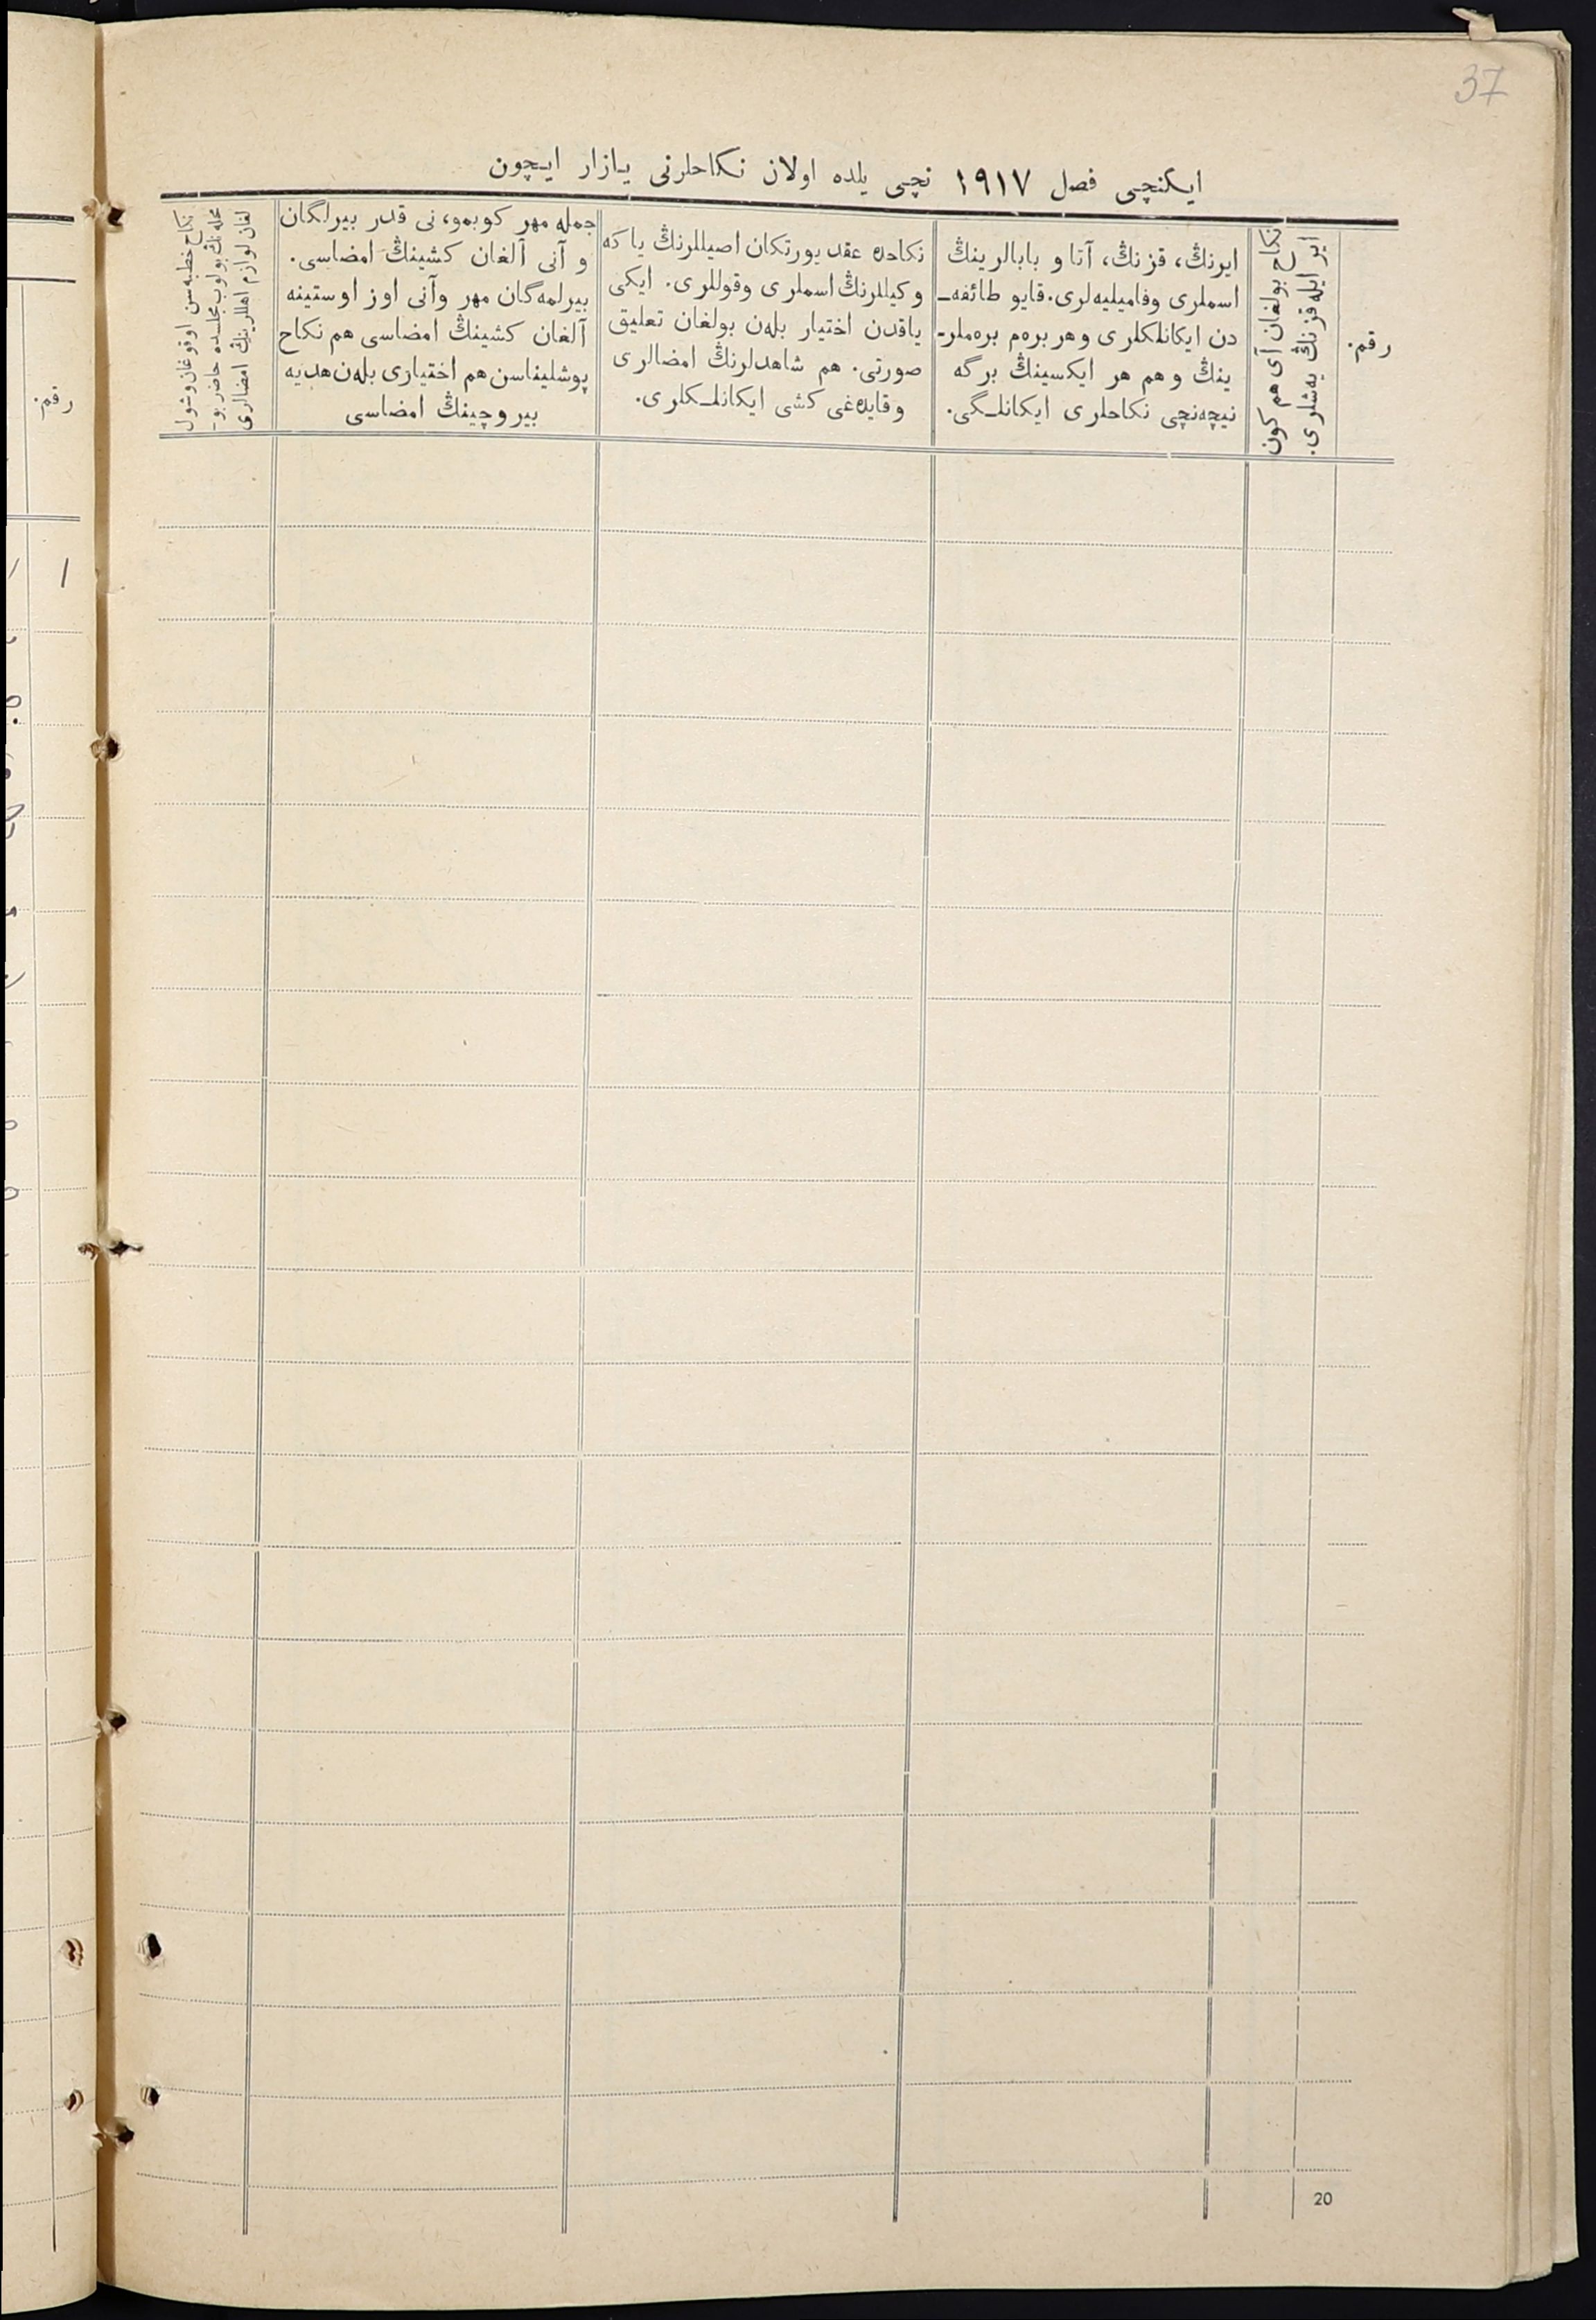 37
ایکنچی فصل ١٩١٧ نچی یلده اولان نکاحلرنی یازار ایچون
رقم.
ایر ایله قزنڭ یه‌شلری.
نکاح بولغان آی هم کون
ایرنڭ، قزنڭ، آتا و بابالرینڭ
اسملری وفامیلیه‌لری. قایو طائفه‌ـ
دن ایکانلکلری وهر بره‌م بره‌ملرـ
ینڭ وهم هر ایکسینڭ برگه
نیچه‌نچی نکاحلری ایکانلـگی.
نکاحده عقد یورتکان اصیللرنڭ یا که
وکیللرنڭ اسملری وقوللری. ایکی
یاقدن اختیار بله‌ن بولغان تعلیق
صورتی. هم شاهدلرنڭ امضالری
وقایده‌غی کشی ایکانلـکلری.
جمله مهر کوبمو، نی قدر بیرلگان
و آنی آلغان کشینڭ امضاسی.
بیرلمه‌گان مهر وآنی اوز اوستینه
آلغان کشینڭ امضاسی هم نکاح
پوشلیناسن هم اختیاری بله‌ن هدیه
بیروچینڭ امضاسی
نکاح خطبه سن اوقوغان وشول
محله نڭ بولوب مجلسده حاضر بوـ
لغان لوازم اهللرینڭ امضالری
رقم.
١
20